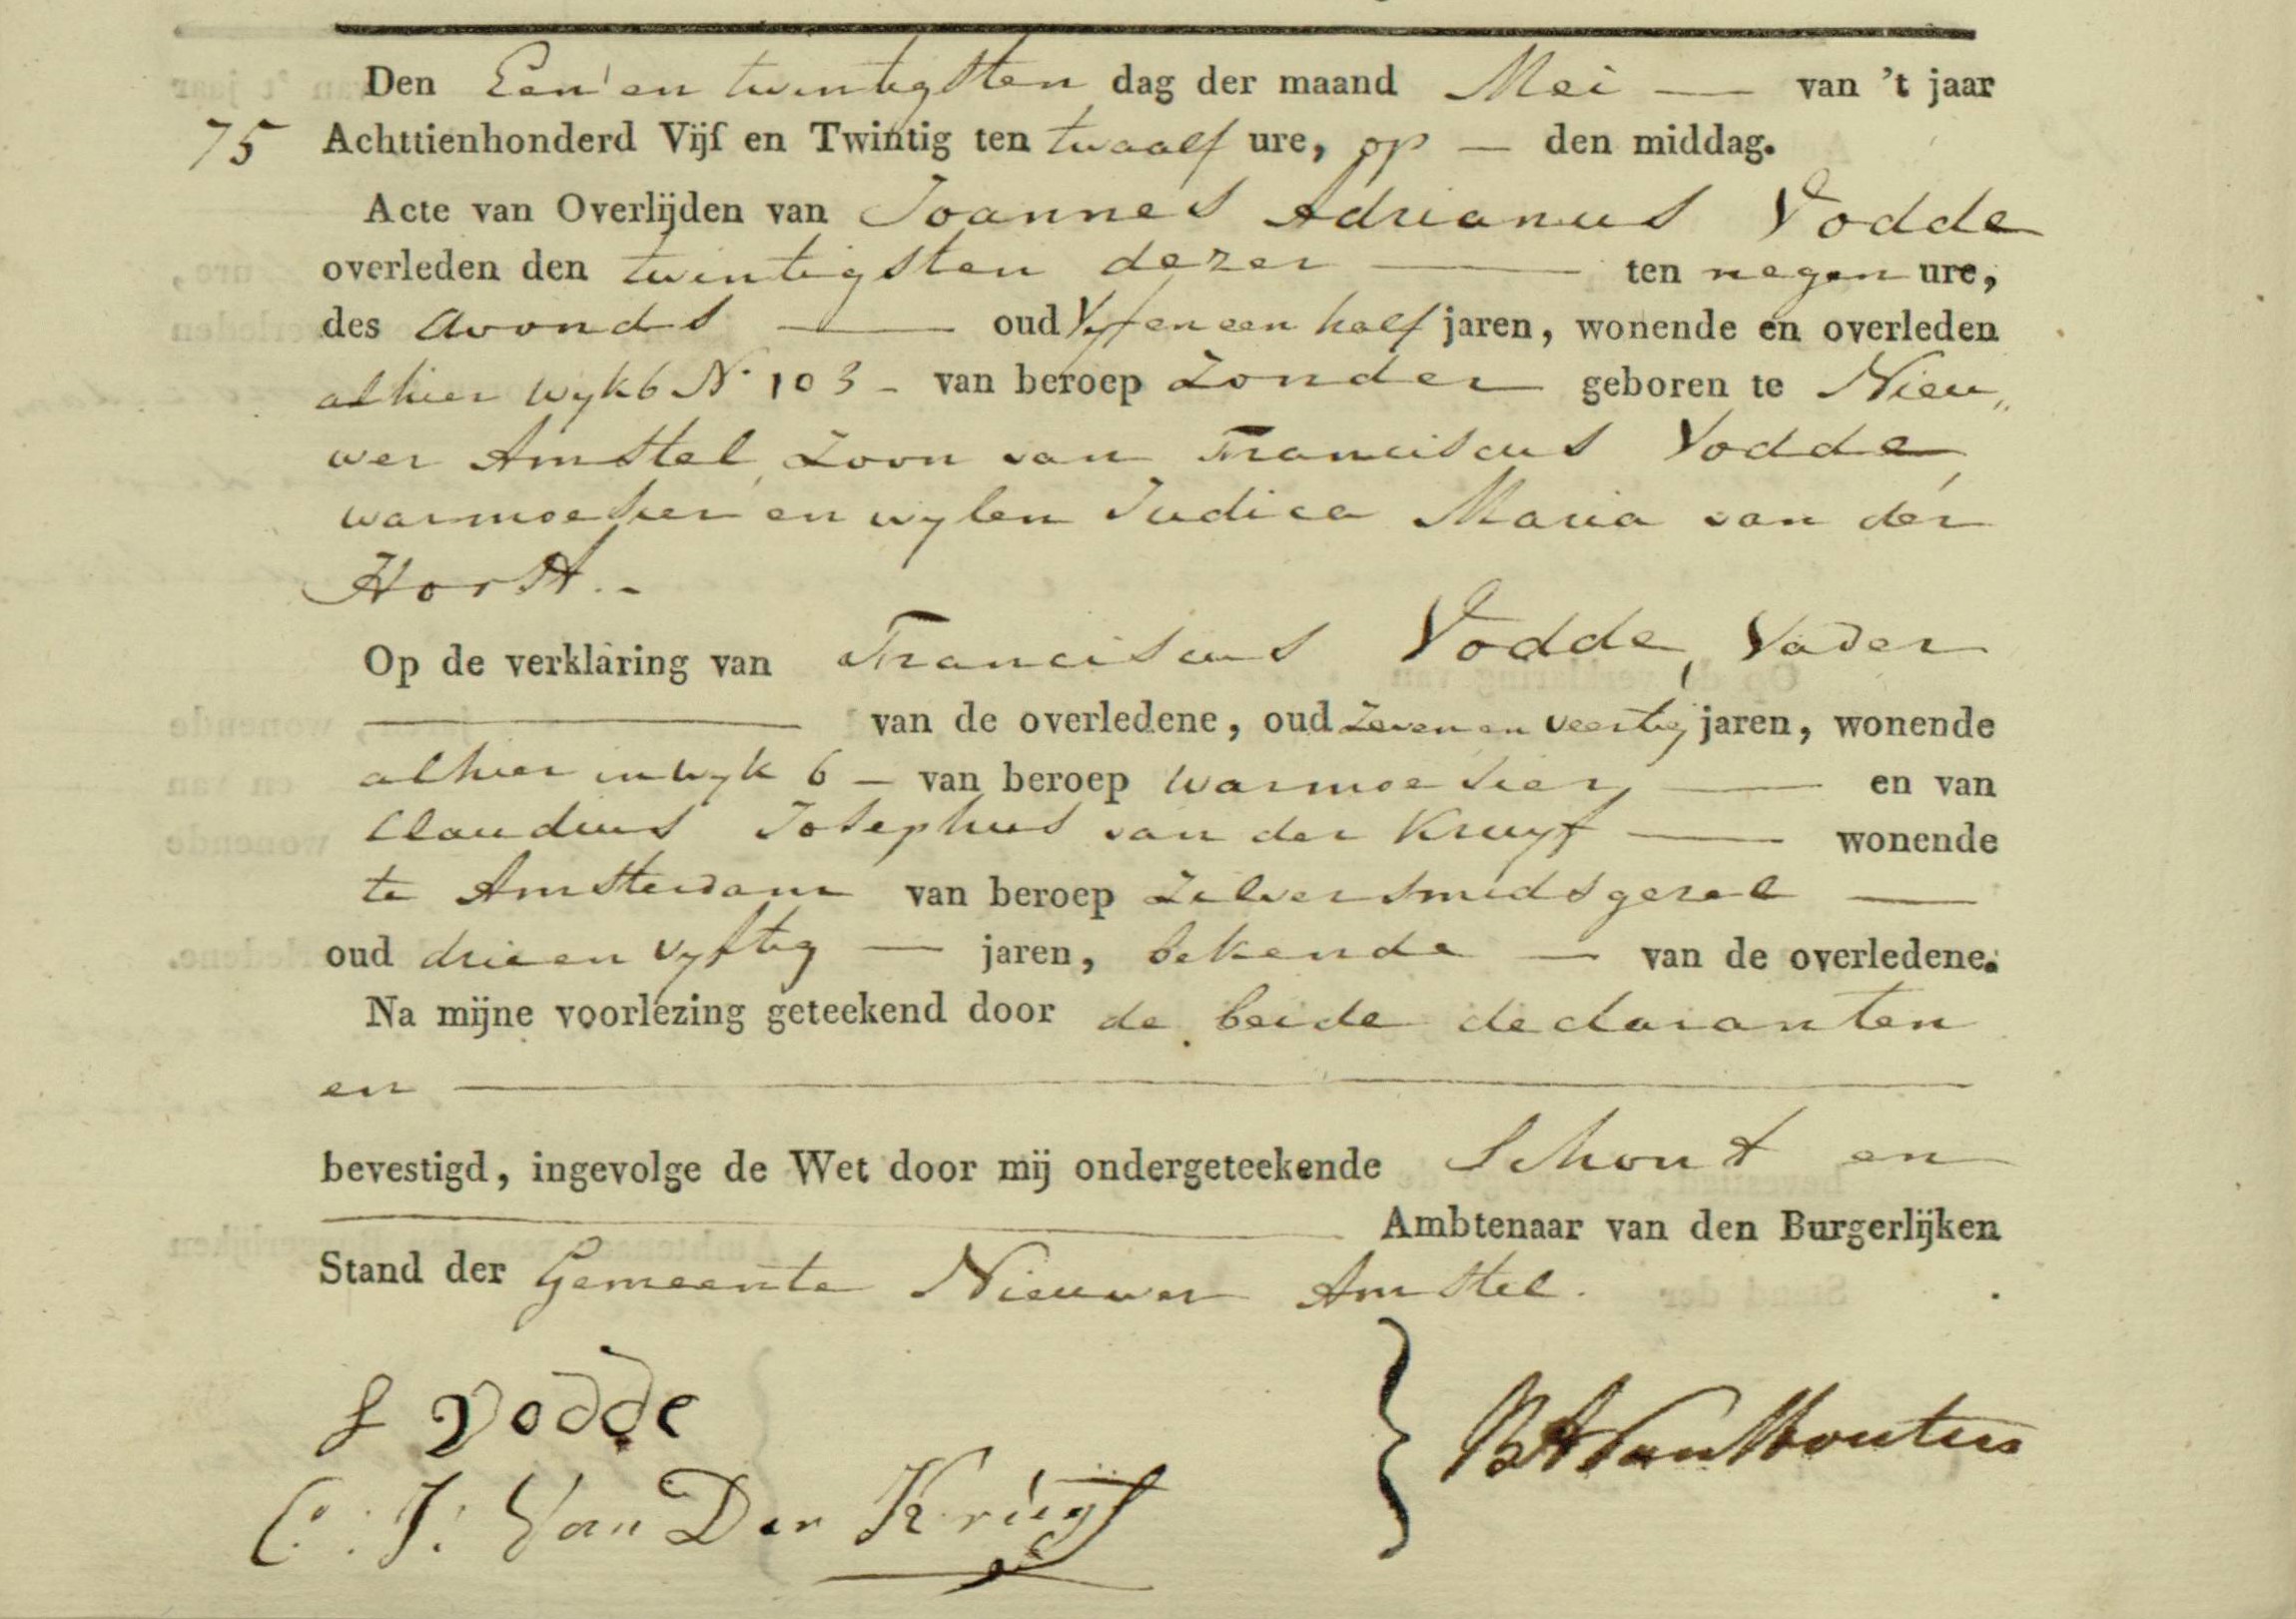 Den Een en twintigsten dag der maand Mei — van 't jaar
75 Achttienhonderd Vijf en Twintig ten twaalf ure, op — den middag.
Acte van Overlijden van Joannes Adrianus Vodde
overleden den twintigsten dezer — ten negen ure,
des avonds — oud Vyf en een half jaren, wonende en overleden
alhier wyk 6 N. 103 - van beroep Zonder geboren te Nieu„
wer Amstel, Zoon van Franciscus Vodde,
warmoesier en wylen Judica Maria van der
Horst.-
Op de verklaring van Franciscus Vodde, Vader
— van de overledene, oud Zeven en veertig jaren, wonende
alhier in wyk 6 — van beroep warmoesier, — en van
Claudius Josephus van der Kruyf — wonende
te Amsterdam van beroep Zilversmidsgezel —
oud drie en vyftig — jaren, bekende — van de overledene.
Na mijne voorlezing geteekend door de beide declaranten
en —
bevestigd, ingevolge de Wet door mij ondergeteekende Schout en
— Ambtenaar van den Burgerlijken
Stand der Gemeente Nieuwer Amstel.
f Vodde
C. J. Van Der Kruyf